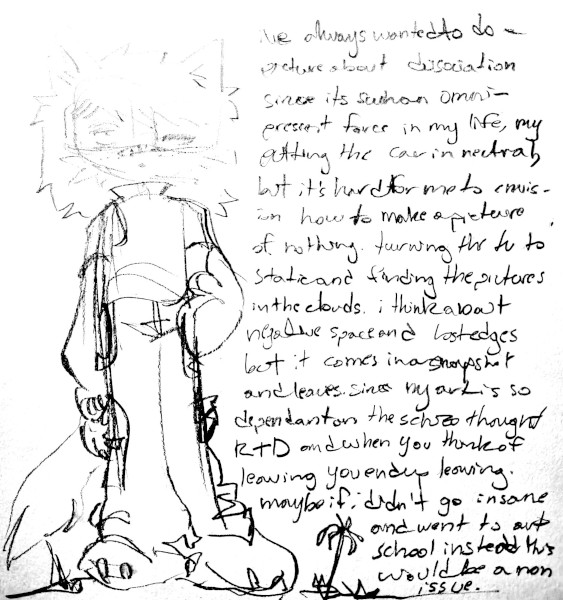 i've always wanted to do a
picture about dissociation
since its such an omni-
present force in my life, my
putting the car in neutral,
but it's hard for me to envis-
ion how to make a picture
of nothing. turning the tv to
static and finding the pictures
in the clouds. i think about
negative space and lost edges
but it comes in a snapshot
and leaves. since my art is so
dependant on the schizo thought
R+D and when you think of
leaving you end up leaving.
maybe if i didn't go insane
and went to art
school instead this
would be a non
issue.